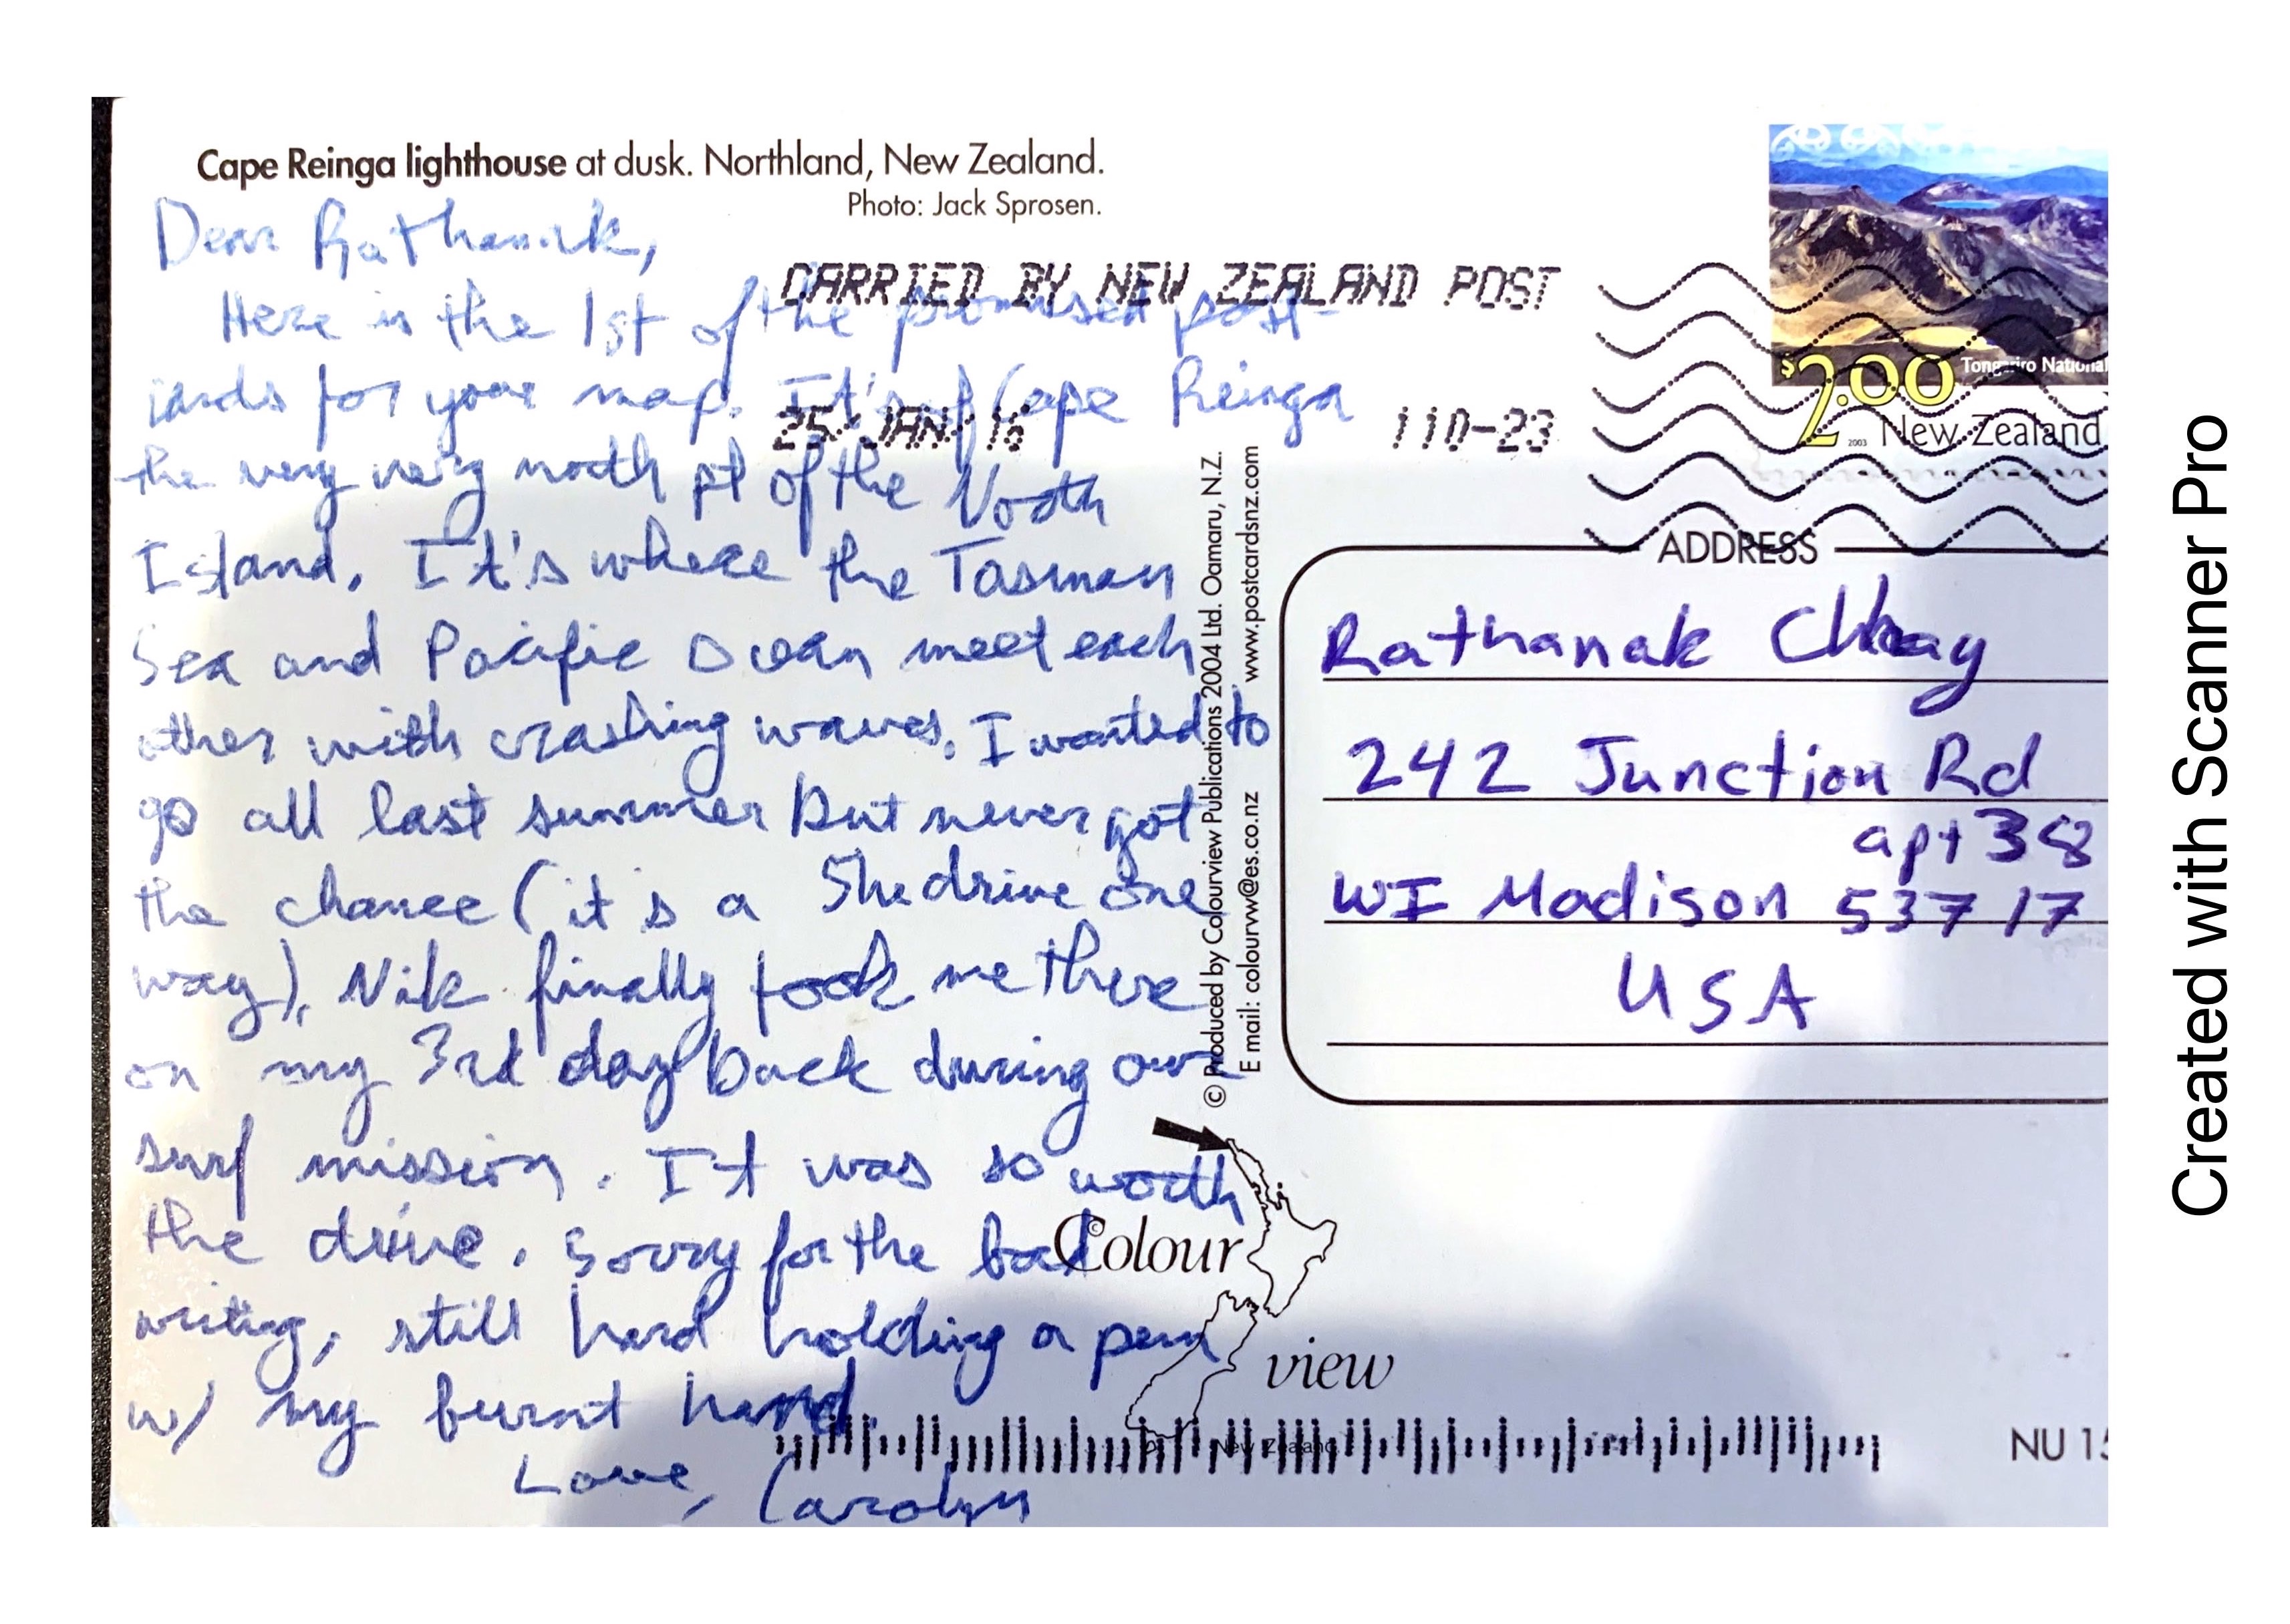 Cape Reinga lighthouse at dusk. Northland, New Zealand.
Photo: Jack Sprosen.
Dear Rathanak,
Here is the 1st of the promised post-
cards for your map. It's of Cape Reinga
the very very north pt of the North
Island. It's where the Tasman
Sea and Pacific Ocean meet each
other with crashing waves. I wanted to
go all last summer but never got
the chance (it's a 5hr drive one
way). Nik finally took me there
on my 3rd day back during our
surf mission. It was so worth
the drive. Sorry for the bad
writing, still hard holding a pen
w/ my burnt hand.
Love, Carolyn
CARRIED BY NEW ZEALAND POST
25 JAN 16 110-23
$2.00 Tongariro National
2003 New Zealand
© Produced by Colourview Publications 2004 Ltd. Oamaru, N.Z.
E mail: colourvw@es.co.nz www.postcardsnz.com
ADDRESS
Rathanak Chhay
242 Junction Rd
apt 38
WI Madison 53717
USA
©
Colour
view
New Zealand
NU 15
Created with Scanner Pro